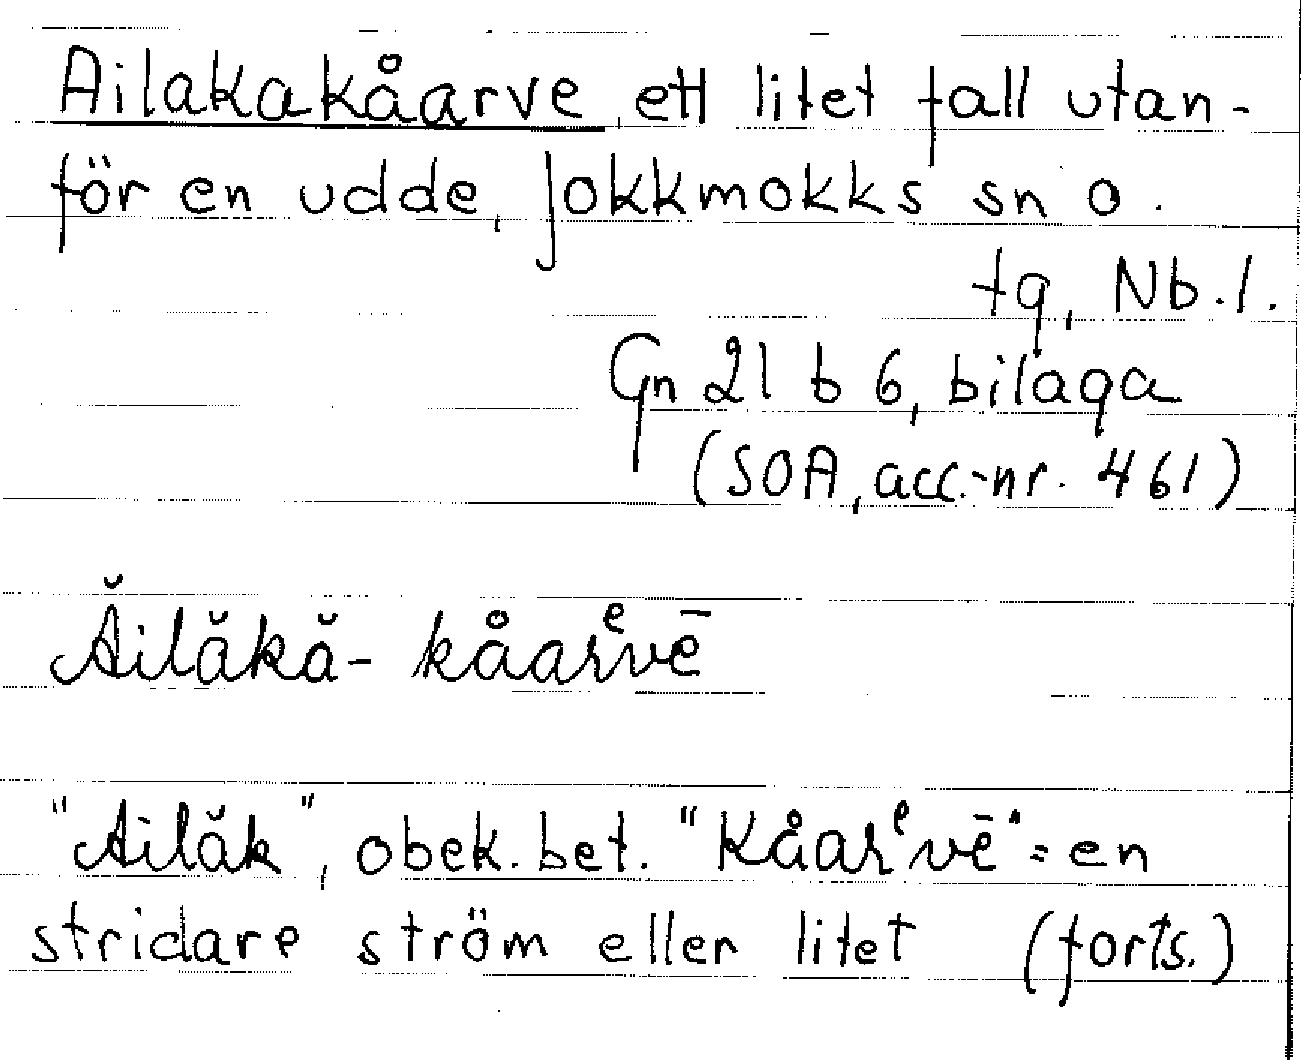 Ailakakåarve, ett litet fall utan-
för en udde, Jokkmokks sn o.
tg, Nb. l.
Gn 21 b 6, bilaga
(SOA, acc.-nr. 461)
Ăilăkă- kåarᵉvē
"Ailăk", obek. bet. "Kåarᵉvē" = en
stridare ström eller litet (forts.)